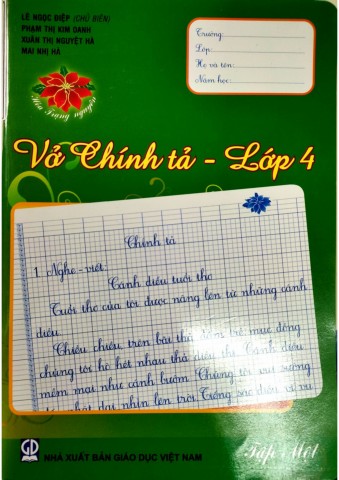 LÊ NGỌC ĐIỆP (CHỦ BIÊN)
PHẠM THỊ KIM OANH
XUÂN THỊ NGUYỆT HÀ
MAI NHỊ HÀ
Hoa Trạng nguyên
Trường:
Lớp:
Họ và tên:
Năm học:
Vở Chính tả - Lớp 4
Chính tả
1. Nghe - viết:
Cánh diều tuổi thơ
Tuổi thơ của tôi được nâng lên từ những cánh
diều.
Chiều chiều, trên bãi thả, đám trẻ mục đồng
chúng tôi hò hét nhau thả diều thi. Cánh diều
mềm mại như cánh bướm. Chúng tôi vui sướng
hát dại nhìn lên trời. Tiếng sáo diều vi vu
NHÀ XUẤT BẢN GIÁO DỤC VIỆT NAM
Tập Một